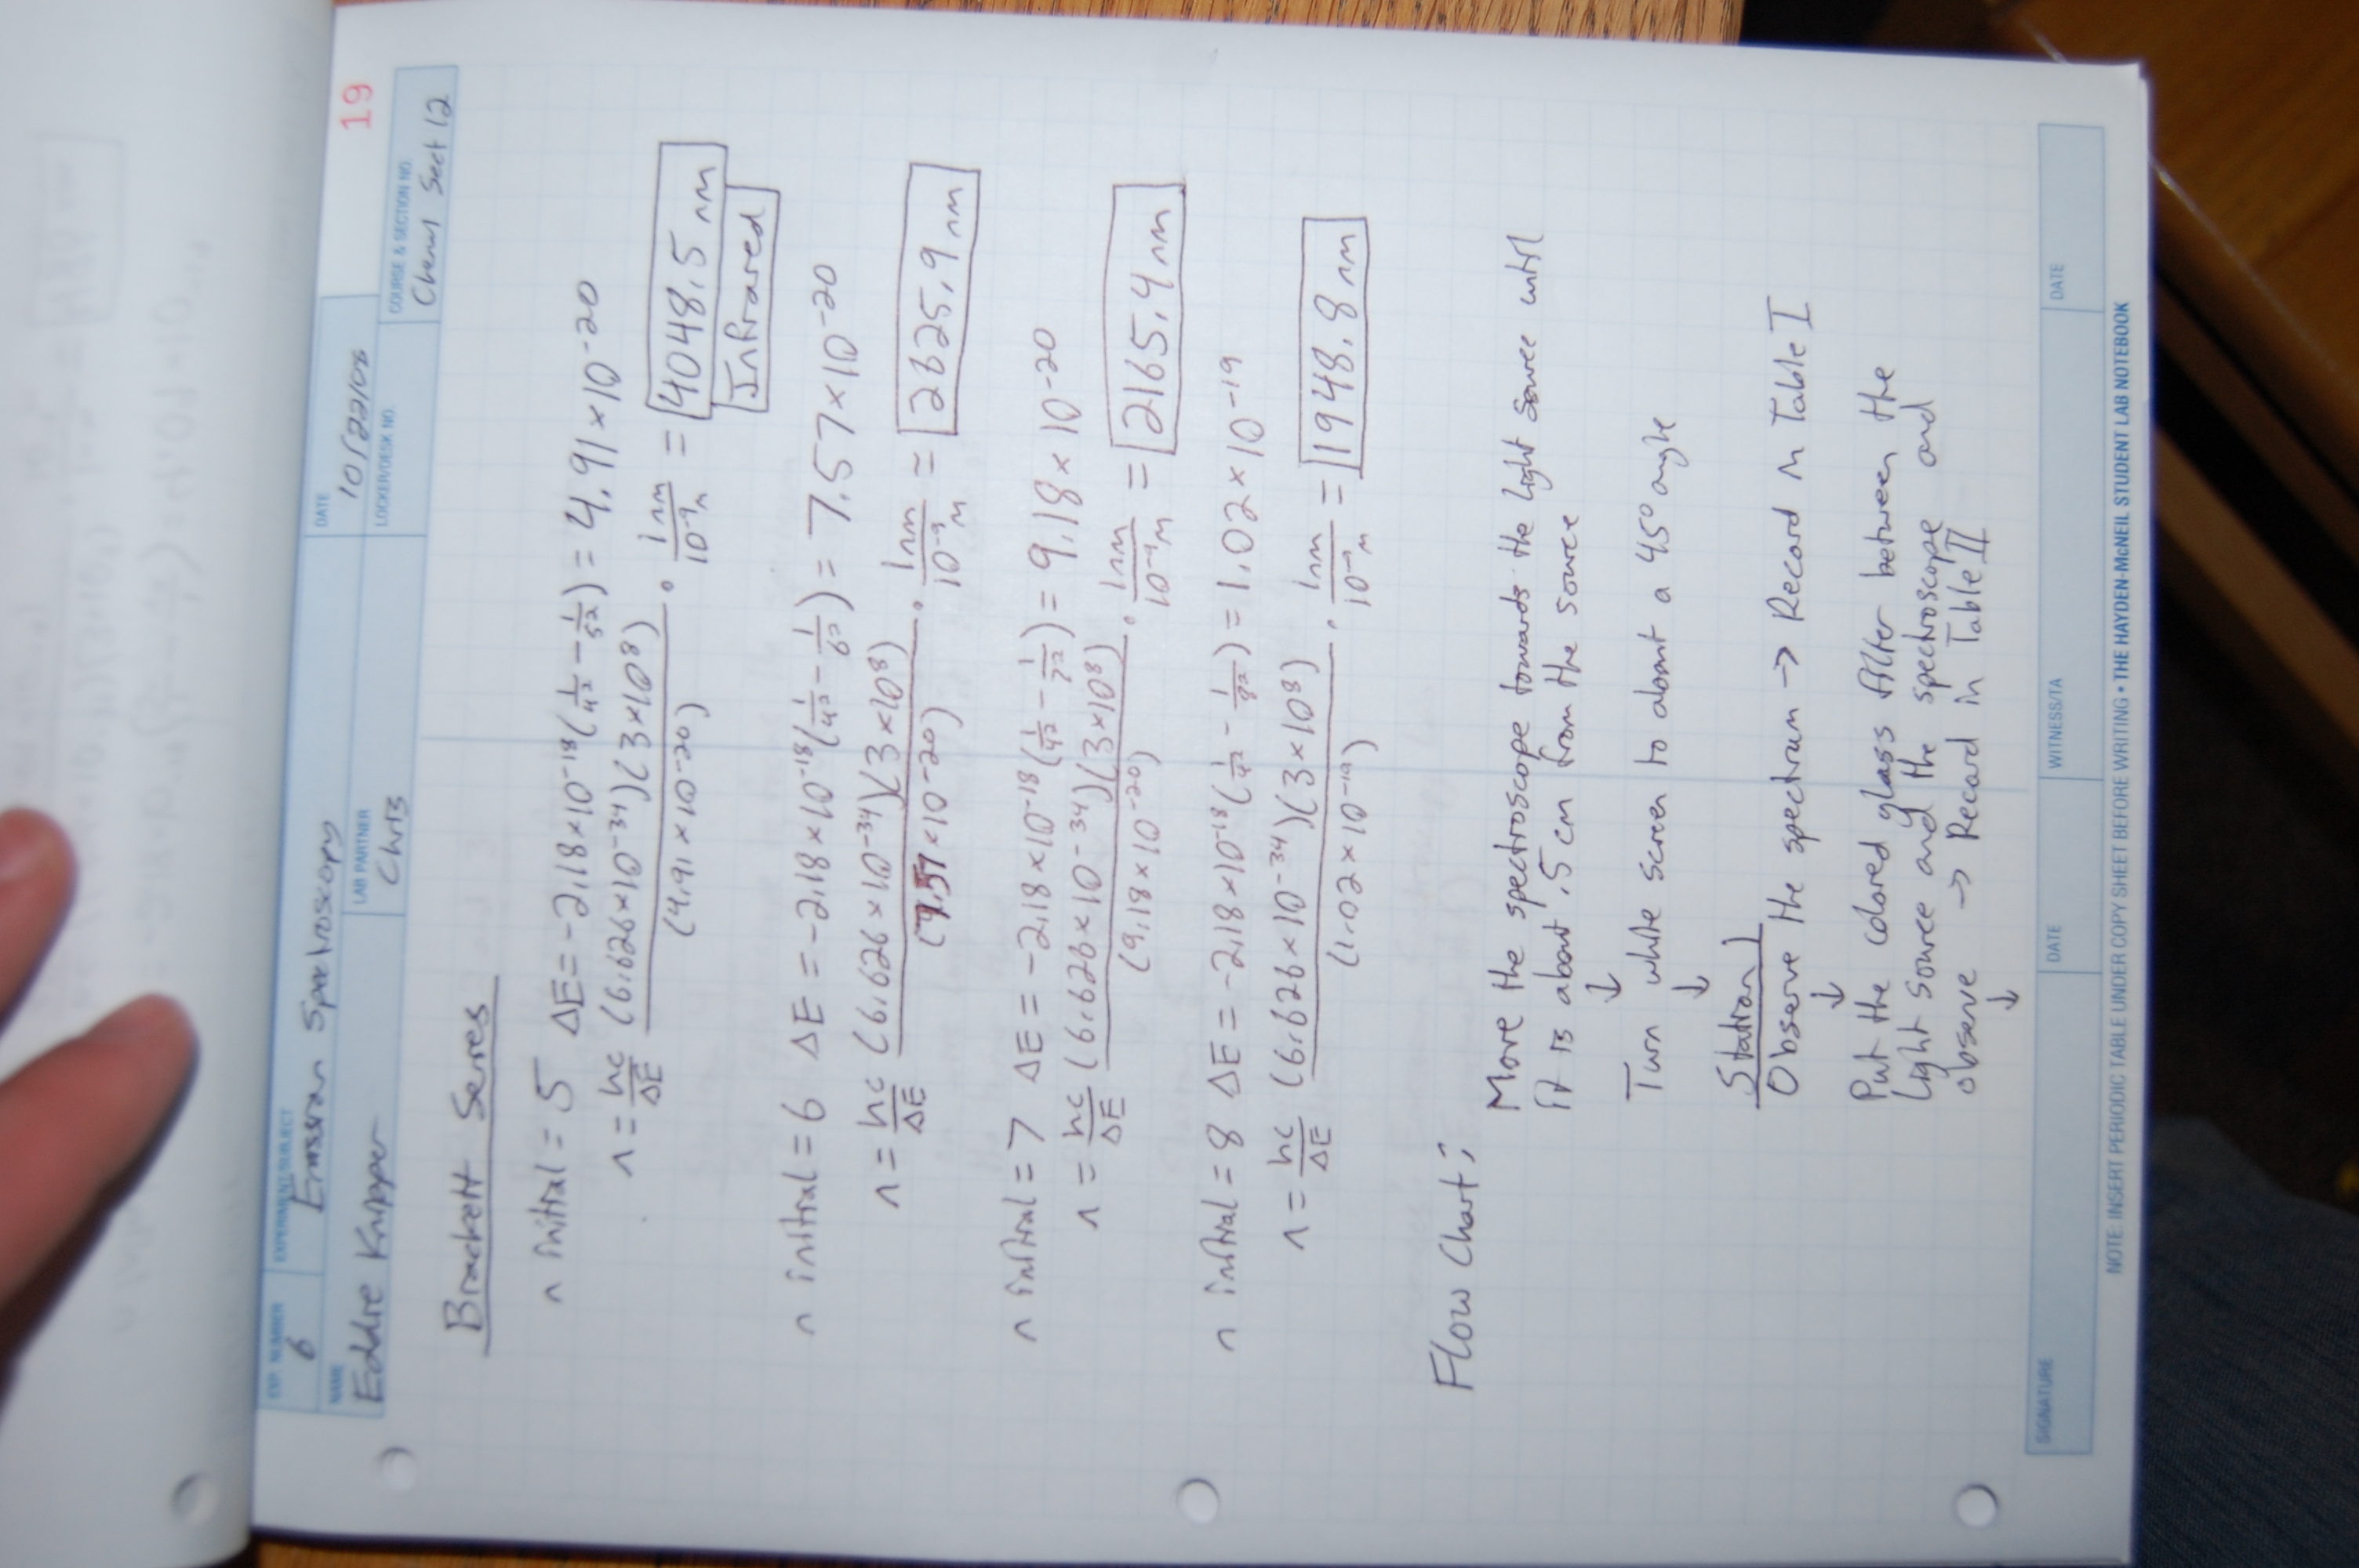 19
EXP. NUMBER EXPERIMENT/SUBJECT DATE
6 Emission Spectroscopy 10/22/08
NAME LAB PARTNER LOCKER/DESK NO. COURSE & SECTION NO.
Eddie Knipper Chris Chem1 Sect 12
Brackett Series
n initial = 5 ΔE = -2.18×10⁻¹⁸(1/4² - 1/5²) = 4.91×10⁻²⁰
λ = hc/ΔE (6.626×10⁻³⁴)(3×10⁸)/(4.91×10⁻²⁰) · 1nm/10⁻⁹m = 4048.5 nm
Infrared
n initial = 6 ΔE = -2.18×10⁻¹⁸(1/4² - 1/6²) = 7.57×10⁻²⁰
λ = hc/ΔE (6.626×10⁻³⁴)(3×10⁸)/(7.57×10⁻²⁰) · 1nm/10⁻⁹m = 2625.9 nm
n initial = 7 ΔE = -2.18×10⁻¹⁸(1/4² - 1/7²) = 9.18×10⁻²⁰
λ = hc/ΔE (6.626×10⁻³⁴)(3×10⁸)/(9.18×10⁻²⁰) · 1nm/10⁻⁹m = 2165.4 nm
n initial = 8 ΔE = -2.18×10⁻¹⁸(1/4² - 1/8²) = 1.02×10⁻¹⁹
λ = hc/ΔE (6.626×10⁻³⁴)(3×10⁸)/(1.02×10⁻¹⁹) · 1nm/10⁻⁹m = 1948.8 nm
Flow Chart:
Move the spectroscope towards the light source until
it is about .5 cm from the source
↓
Turn white screen to about a 45° angle
↓
Station 1
Observe the spectrum → Record in Table I
↓
Put the colored glass filter between the
light source and the spectroscope and
observe → Record in Table II
↓
SIGNATURE DATE WITNESS/TA DATE
NOTE: INSERT PERIODIC TABLE UNDER COPY SHEET BEFORE WRITING • THE HAYDEN-McNEIL STUDENT LAB NOTEBOOK